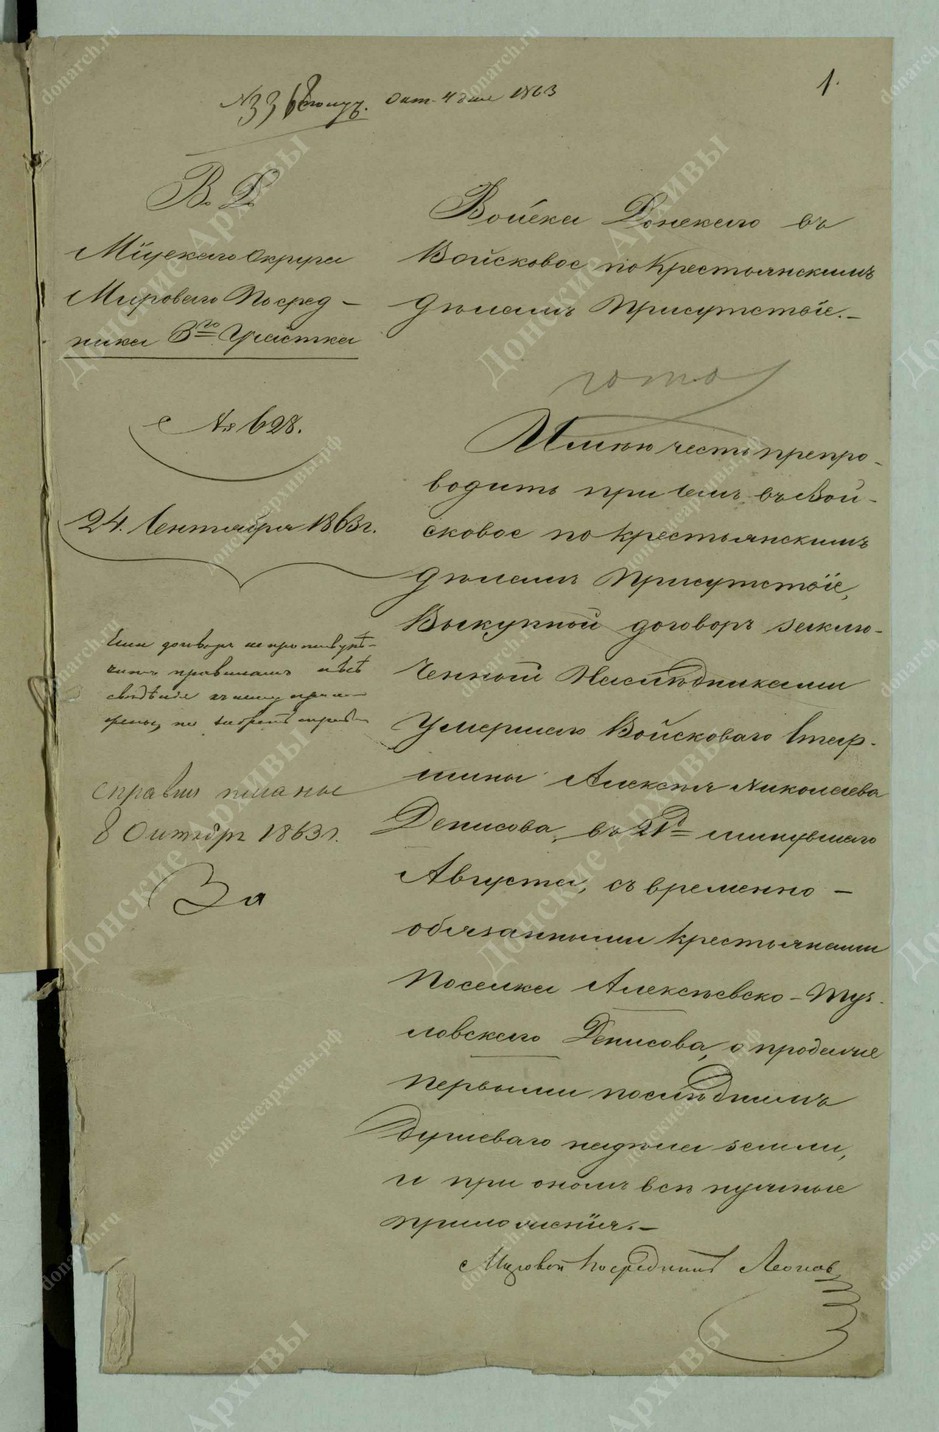 1.
Окт. 4 дня 1863
В. Д.
Міускаго Округа
Мироваго Посред-
ника 3го Участка
№ 628.
24. Сентября 1863 г.
Войска Донскаго въ
Войсковое по Крестьянскимъ
дѣламъ Присутствіе.-
Имѣю честь препро-
водить при семъ въ Вой-
сковое по крестьянскимъ
дѣламъ Присутствіе,
Выкупной договоръ заклю-
ченной Наслѣдниками
умершаго Войсковаго Стар-
шины Алексѣя Николаева
Денисова, въ 21й минувшаго
Августа, съ временно-
обязанными крестьянами
Поселка Алексѣевско-Туз-
ловскаго Денисова, о продаже
первыми послѣднимъ
душеваго надѣла земли,
и при ономъ всѣ нужные
приложенія.-
Мировой Посредникъ Леонов
Если договоръ не противурѣ-
читъ правиламъ
справка
8 Октября 1863 г.